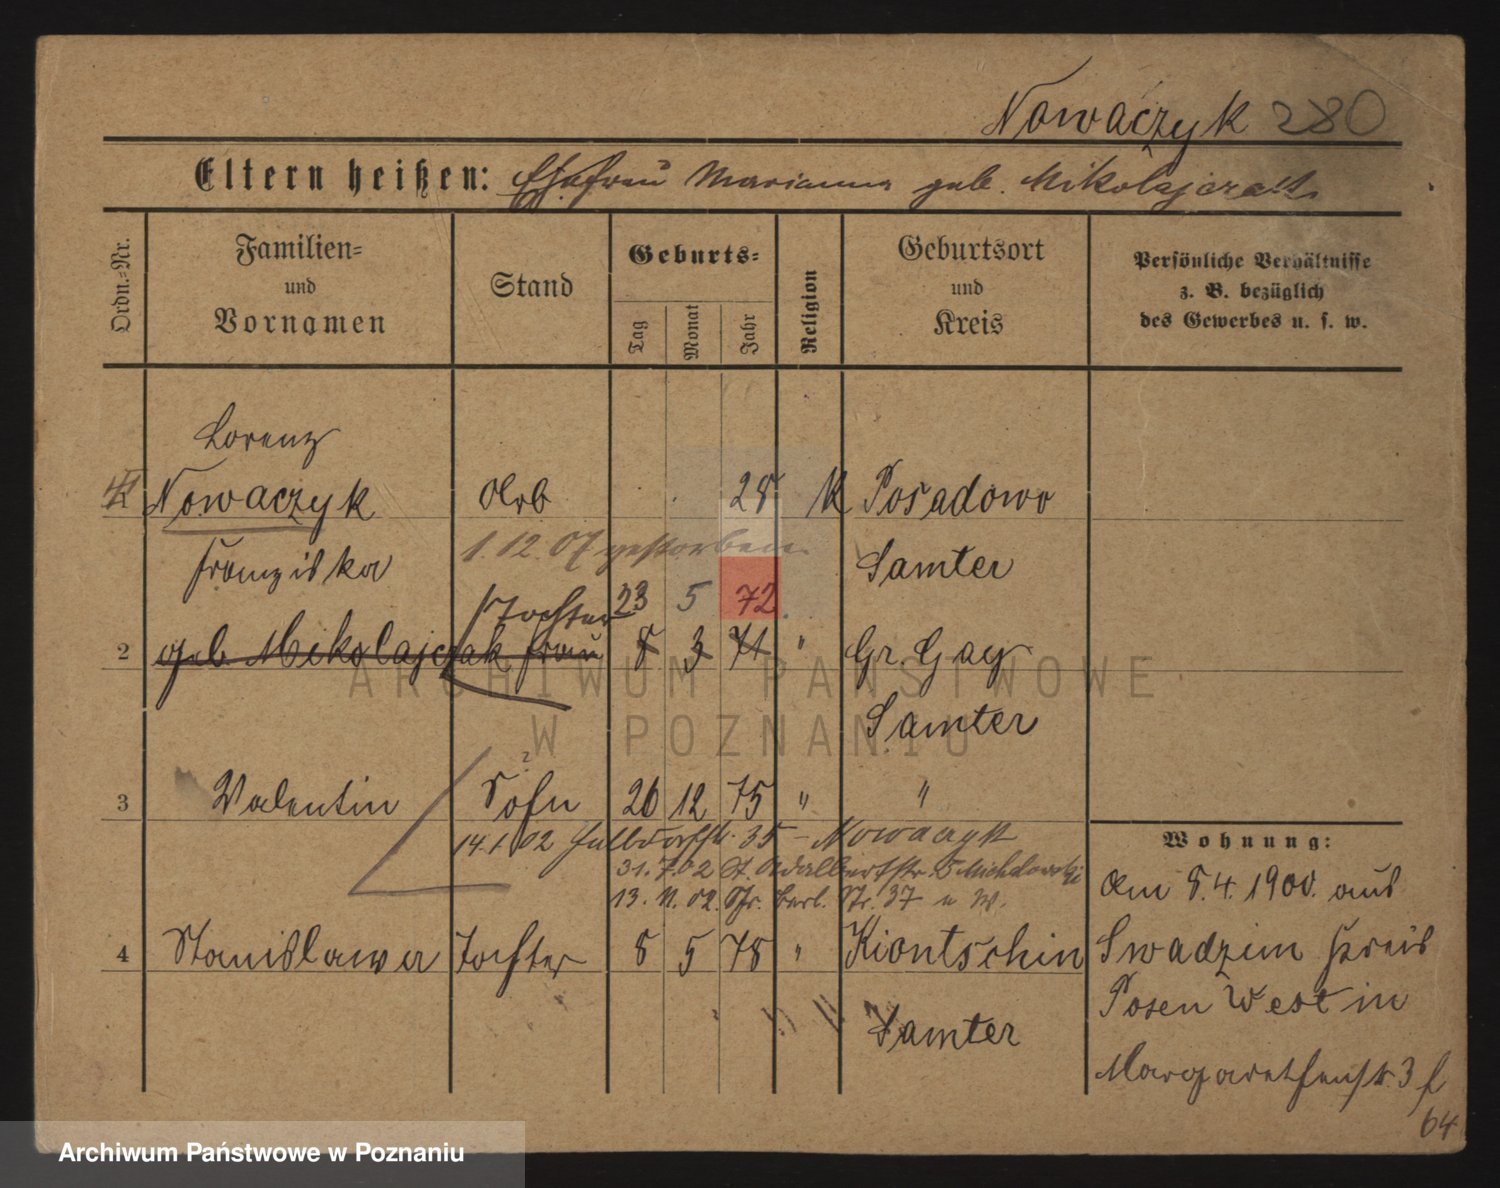 Nowaczyk 280
Eltern heißen: Ehefrau Marianna geb. Mikolajczak
Ordn.-Nr.
Familien-
und
Vornamen
Stand
Geburts-
Tag
Monat
Jahr
Religion
Geburtsort
und
Kreis
Persönliche Verhältnisse
z. B. bezüglich
des Gewerbes u. s. w.
Lorenz
Nowaczyk 28 K Posadowo
1.12.07 gestorben.
Franziska Samter
Tochter 23 5 72
2 geb. Mikolajczak Frau 8 3 71 " Gr. Gay
Samter
3 Valentin Sohn 26 12 75 " "
14.1.02 35 – Nowaczyk
31.7.02 St. Adalbertstr. 5 Michalowski
13.11.02 Str. 37 u W.
4 Stanislawa Tochter 8 5 78 " Kiontschin
Samter
Wohnung:
Am 8.4.1900. aus
Swadzim Kreis
Posen West in
Margarethenstr. 3 f
64
ARCHIWUM PAŃSTWOWE
W POZNANIU
Archiwum Państwowe w Poznaniu